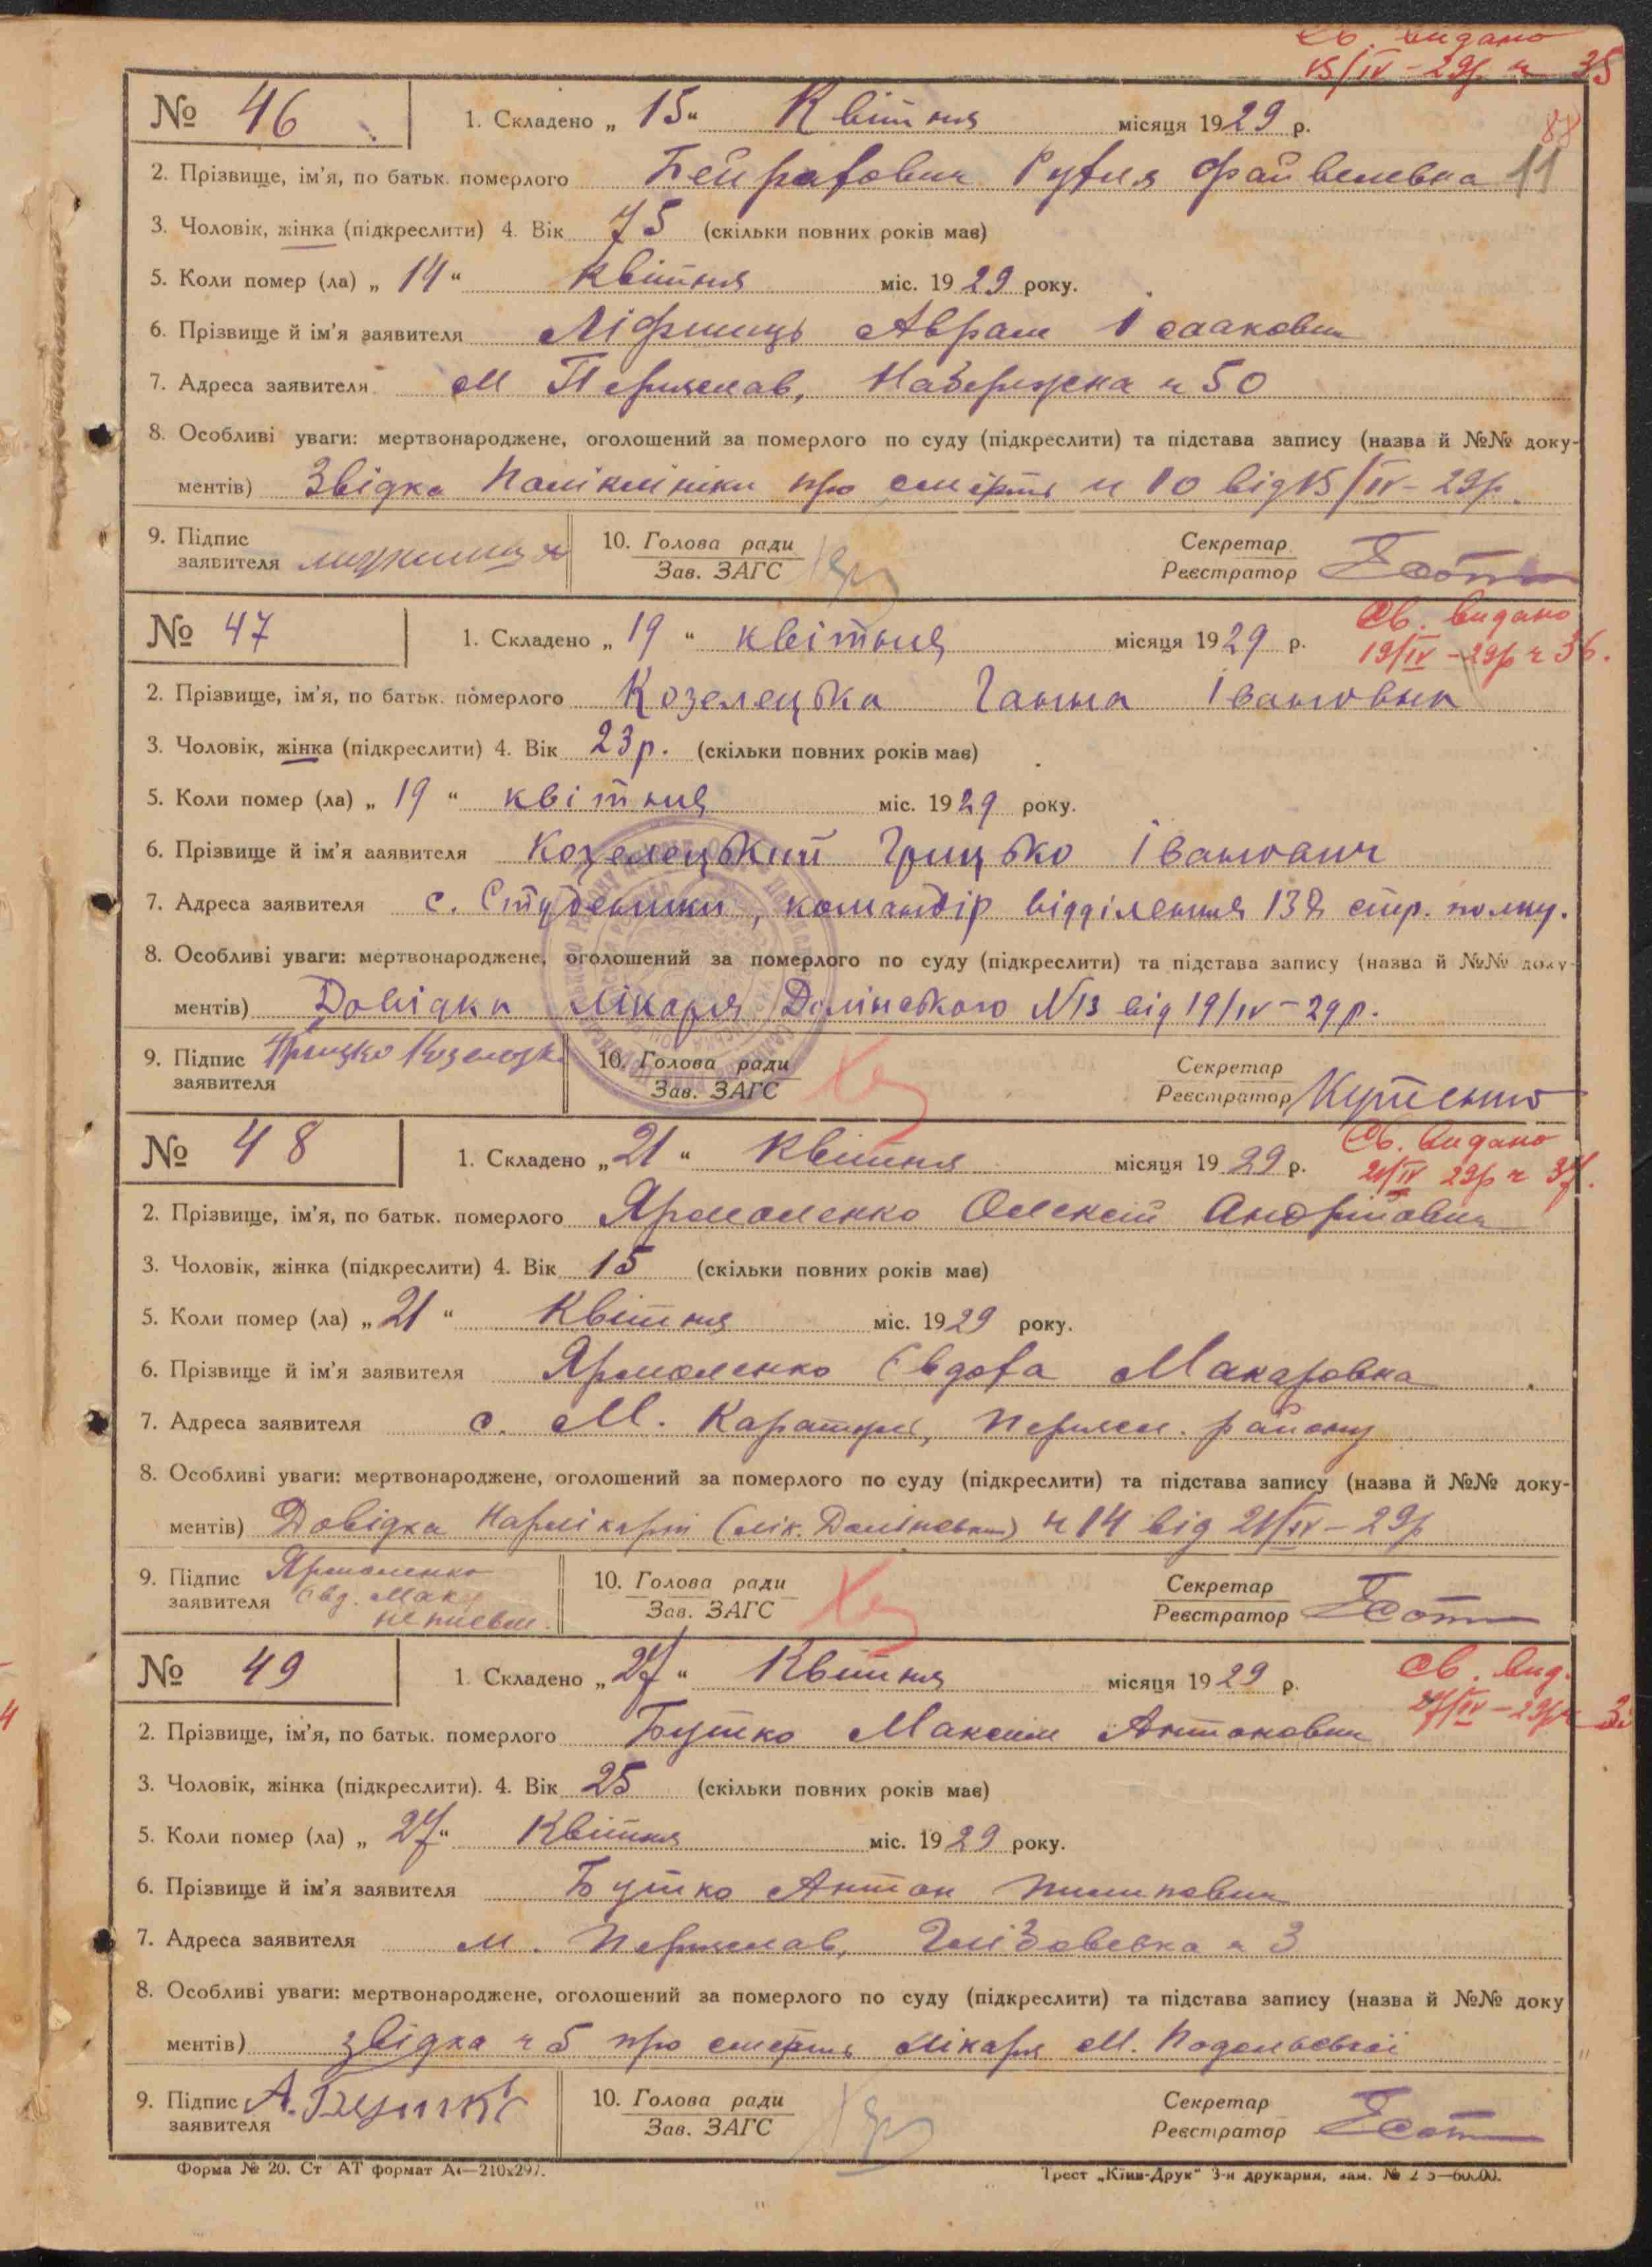 Св. видано
15/IV – 29р. ч 35
№ 46
1. Складено „ 15 “ Квітня місяця 1929 р.
88
11
2. Прізвище, ім'я, по батьк. померлого Файвелевна
3. Чоловік, жінка (підкреслити) 4. Вік 75 (скільки повних років має)
5. Коли помер (ла) „ 14 “ квітня міс. 1929 року.
6. Прізвище й ім'я заявителя Ліфшиць Аврам Ісаакович
7. Адреса заявителя м Переяслав, Набережна ч 50
8. Особливі уваги: мертвонароджене, оголошений за померлого по суду (підкреслити) та підстава запису (назва й №№ доку-
ментів) Звідка Поліклініки про смерть ч 10 від 15/IV – 29р.
9. Підпис
заявителя
10. Голова ради
Зав. ЗАГС
Секретар
Реєстратор
№ 47
1. Складено „ 19 “ квітня місяця 1929 р.
Св. видано
19/IV – 29р ч 36.
2. Прізвище, ім'я, по батьк. померлого Козелецька Ганна Івановна
3. Чоловік, жінка (підкреслити) 4. Вік 23р. (скільки повних років має)
5. Коли помер (ла) „ 19 “ квітня міс. 1929 року.
6. Прізвище й ім'я заявителя Козелецький Грицько Іванович
7. Адреса заявителя с. Студеники, командір відділення 138 стр. полку.
8. Особливі уваги: мертвонароджене, оголошений за померлого по суду (підкреслити) та підстава запису (назва й №№ доку-
ментів) Довідка лікаря Долінського N13 від 19/IV – 29р.
9. Підпис Грицко
заявителя
10. Голова ради
Зав. ЗАГС
Секретар
Реєстратор
№ 48
1. Складено „ 21 “ Квітня місяця 1929 р.
Св. видано
21/IV 29р ч 37.
2. Прізвище, ім'я, по батьк. померлого Ярмоленко Олексій Андрійович
3. Чоловік, жінка (підкреслити) 4. Вік 15 (скільки повних років має)
5. Коли помер (ла) „ 21 “ Квітня міс. 1929 року.
6. Прізвище й ім'я заявителя Ярмоленко Макаровна
7. Адреса заявителя с. М. Каратуль, Переясл. району
8. Особливі уваги: мертвонароджене, оголошений за померлого по суду (підкреслити) та підстава запису (назва й №№ доку-
ментів) Довідка (лік. Долінський) ч 14 від 21/IV – 29р
9. Підпис Ярмоленко
заявителя Євд. Мак.
неписьм.
10. Голова ради
Зав. ЗАГС
Секретар
Реєстратор
№ 49
1. Складено „ 27 “ Квітня місяця 1929 р.
Св. вид.
27/IV – 29р ч
2. Прізвище, ім'я, по батьк. померлого Бутко Максим Антонович
3. Чоловік, жінка (підкреслити). 4. Вік 25 (скільки повних років має)
5. Коли помер (ла) „ 27 “ Квітня міс. 1929 року.
6. Прізвище й ім'я заявителя Бутко Антон Пилипович
7. Адреса заявителя м. Переяслав, ч 3
8. Особливі уваги: мертвонароджене, оголошений за померлого по суду (підкреслити) та підстава запису (назва й №№ доку
ментів) звідка ч 5 про смерть лікаря М. Подольської
9. Підпис А. Бутко
заявителя
10. Голова ради
Зав. ЗАГС
Секретар
Реєстратор
Форма № 20. Ст АТ формат А4—210х297.
Трест „Київ-Друк“ 3-я друкарня, зам. №